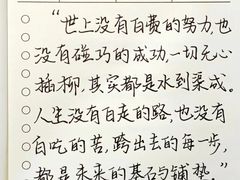 “世上没有白费的努力,也
没有碰巧的成功,一切无心
插柳,其实都是水到渠成。
人生没有白走的路,也没有
白吃的苦,跨出去的每一步,
都是未来的基石与铺垫。”